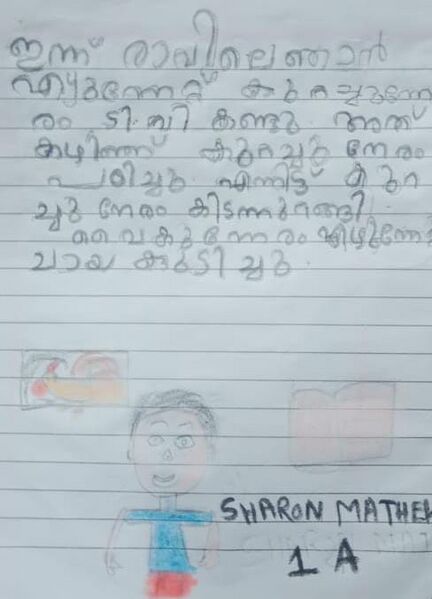 ഇന്ന് രാവിലെ ഞാൻ
എഴുന്നേറ്റ് കുറച്ചുനേ
രം ടി.വി കണ്ടു. അത്
കഴിഞ്ഞ് കുറച്ചു നേരം
പഠിച്ചു. എന്നിട്ട് കുറ
ച്ചു നേരം കിടന്നുറങ്ങി.
വൈകുന്നേരം എഴുന്നേറ്റ്
ചായ കുടിച്ചു.
SHARON MATHEW
1 A